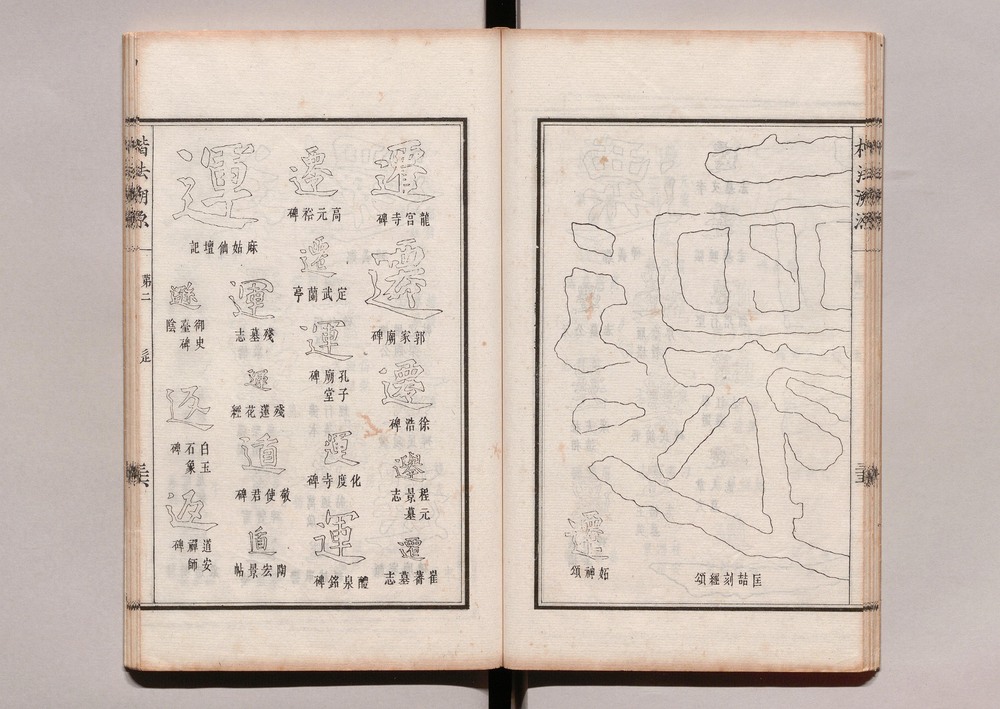 遷
匡喆刻經頌
遷
妬神頌
楷法溯源
遷
龍宮寺碑
遷
郭家廟碑
遷
徐浩碑
遷
程元景墓志
遷
崔蕃墓志
遷
高元裕碑
遷
定武蘭亭
運
孔子廟堂碑
運
化度寺碑
運
醴泉銘碑
運
麻姑仙壇記
運
殘墓志
殘蓮花經
遁
敬使君碑
遁
陶宏景帖
遜
御史臺碑陰
返
白玉石象碑
返
道安禪師碑
楷法溯源
第二
辵